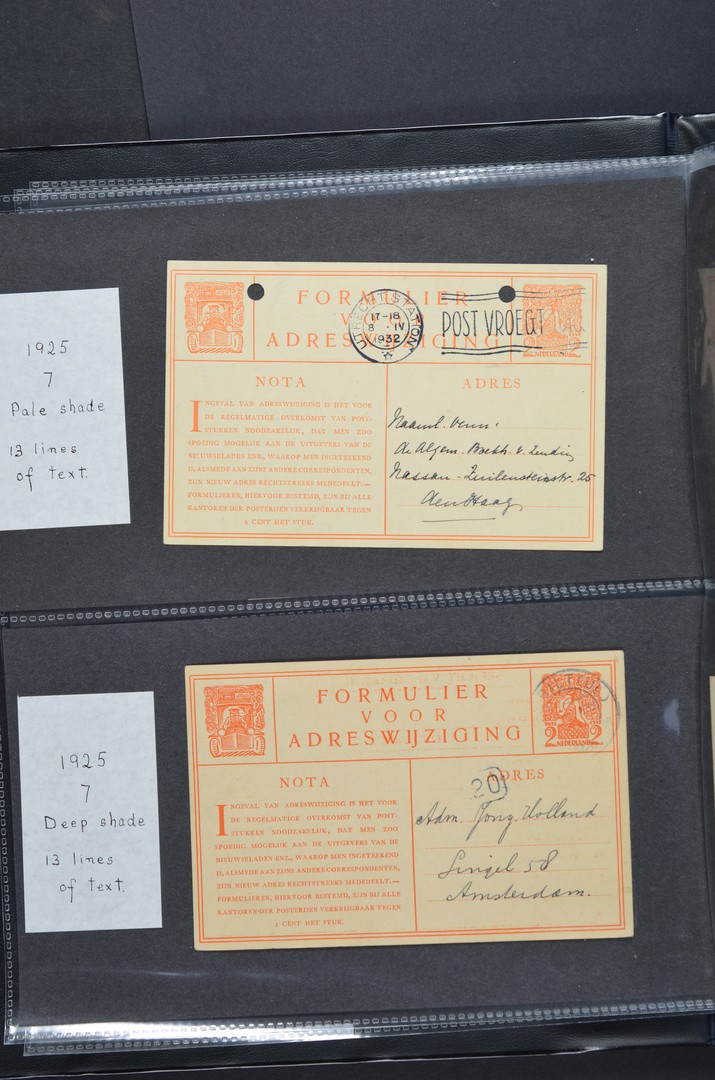 1925
7
Pale shade
13 lines
of text.
FORMULIER
VOOR
ADRESWIJZIGING
UTRECHT STATION
17-18
8 IV
1932
POST VROEGT
2 2
NEDERLAND
NOTA
INGEVAL VAN ADRESWIJZIGING IS HET VOOR
DE REGELMATIGE OVERKOMST VAN POST-
STUKKEN NOODZAKELIJK, DAT MEN ZOO
SPOEDIG MOGELIJK AAN DE UITGEVERS VAN DE
NIEUWSBLADEN ENZ., WAAROP MEN INGETEEKEND
IS, ALSMEDE AAN ZIJNE ANDERE CORRESPONDENTEN,
ZIJN NIEUW ADRES RECHTSTREEKS MEDEDEELT.—
FORMULIEREN, HIERVOOR BESTEMD, ZIJN BIJ ALLE
KANTOREN DER POSTERIJEN VERKRIJGBAAR TEGEN
1 CENT HET STUK.
ADRES
Naaml. Venn:
de Algem.
Nassau - Zuilensteinstr. 25
den Haag
1925
7
Deep shade
13 lines
of text.
FORMULIER
VOOR
ADRESWIJZIGING
2 2
NEDERLAND
NOTA
INGEVAL VAN ADRESWIJZIGING IS HET VOOR
DE REGELMATIGE OVERKOMST VAN POST-
STUKKEN NOODZAKELIJK, DAT MEN ZOO
SPOEDIG MOGELIJK AAN DE UITGEVERS VAN DE
NIEUWSBLADEN ENZ., WAAROP MEN INGETEEKEND
IS, ALSMEDE AAN ZIJNE ANDERE CORRESPONDENTEN,
ZIJN NIEUW ADRES RECHTSTREEKS MEDEDEELT.—
FORMULIEREN, HIERVOOR BESTEMD, ZIJN BIJ ALLE
KANTOREN DER POSTERIJEN VERKRIJGBAAR TEGEN
1 CENT HET STUK.
ADRES
20
Adm. Jong Holland
Singel 58
Amsterdam.